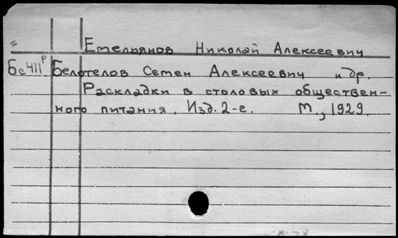 Емельянов Николай Алексеевич
Бс411р Белотелов Семен Алексеевич и др.
Раскладки в столовых обществен-
ного питания. Изд. 2-е. М., 1929.